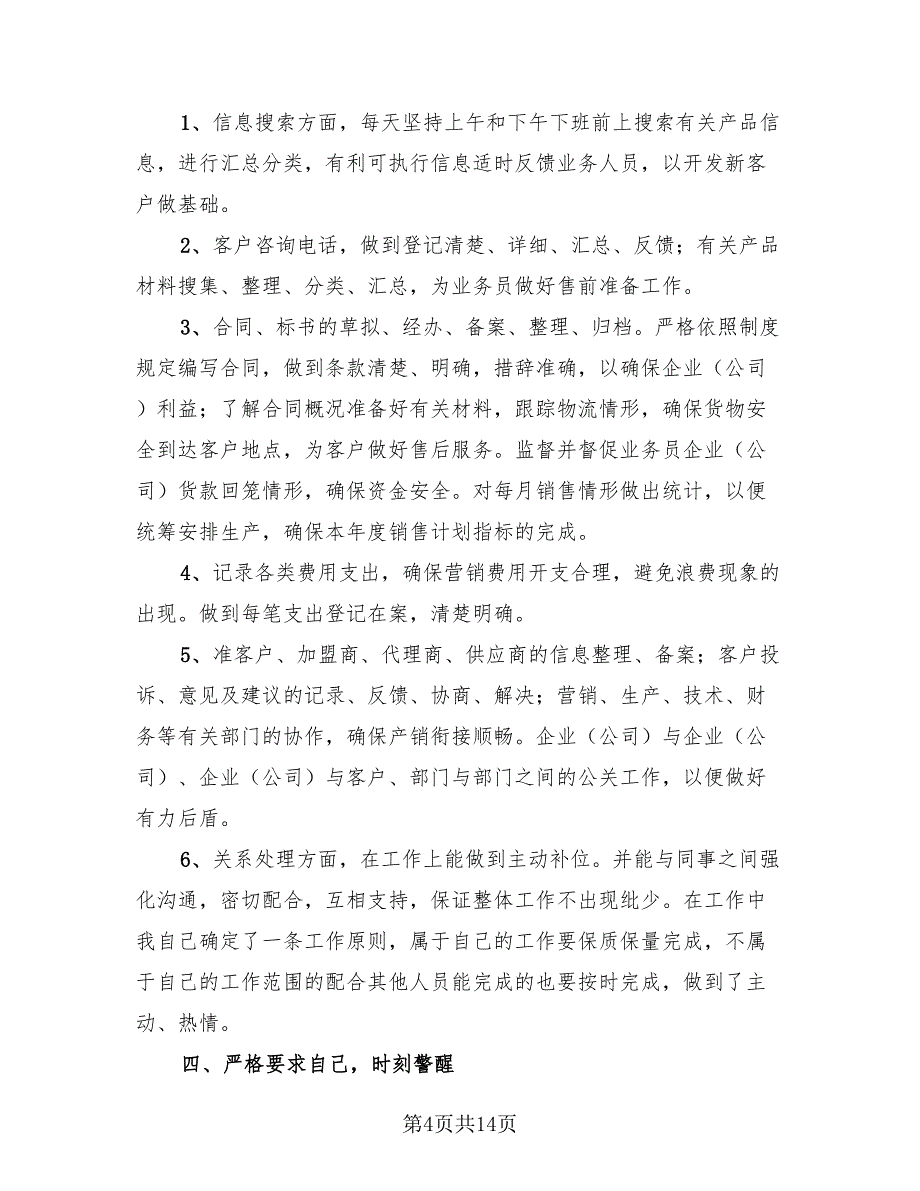 1、信息搜索方面，每天坚持上午和下午下班前上搜索有关产品信
息，进行汇总分类，有利可执行信息适时反馈业务人员，以开发新客
户做基础。
2、客户咨询电话，做到登记清楚、详细、汇总、反馈；有关产品
材料搜集、整理、分类、汇总，为业务员做好售前准备工作。
3、合同、标书的草拟、经办、备案、整理、归档。严格依照制度
规定编写合同，做到条款清楚、明确，措辞准确，以确保企业（公司
）利益；了解合同概况准备好有关材料，跟踪物流情形，确保货物安
全到达客户地点，为客户做好售后服务。监督并督促业务员企业（公
司）货款回笼情形，确保资金安全。对每月销售情形做出统计，以便
统筹安排生产，确保本年度销售计划指标的完成。
4、记录各类费用支出，确保营销费用开支合理，避免浪费现象的
出现。做到每笔支出登记在案，清楚明确。
5、准客户、加盟商、代理商、供应商的信息整理、备案；客户投
诉、意见及建议的记录、反馈、协商、解决；营销、生产、技术、财
务等有关部门的协作，确保产销衔接顺畅。企业（公司）与企业（公
司）、企业（公司）与客户、部门与部门之间的公关工作，以便做好
有力后盾。
6、关系处理方面，在工作上能做到主动补位。并能与同事之间强
化沟通，密切配合，互相支持，保证整体工作不出现纰少。在工作中
我自己确定了一条工作原则，属于自己的工作要保质保量完成，不属
于自己的工作范围的配合其他人员能完成的也要按时完成，做到了主
动、热情。
四、严格要求自己，时刻警醒
第4页共14页